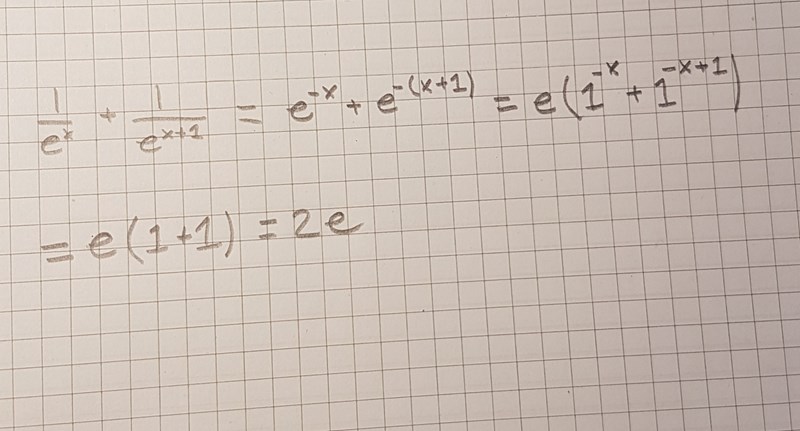 1/e^x + 1/e^(x+1) = e^(-x) + e^(-(x+1)) = e(1^(-x) + 1^(-x+1))
= e(1+1) = 2e